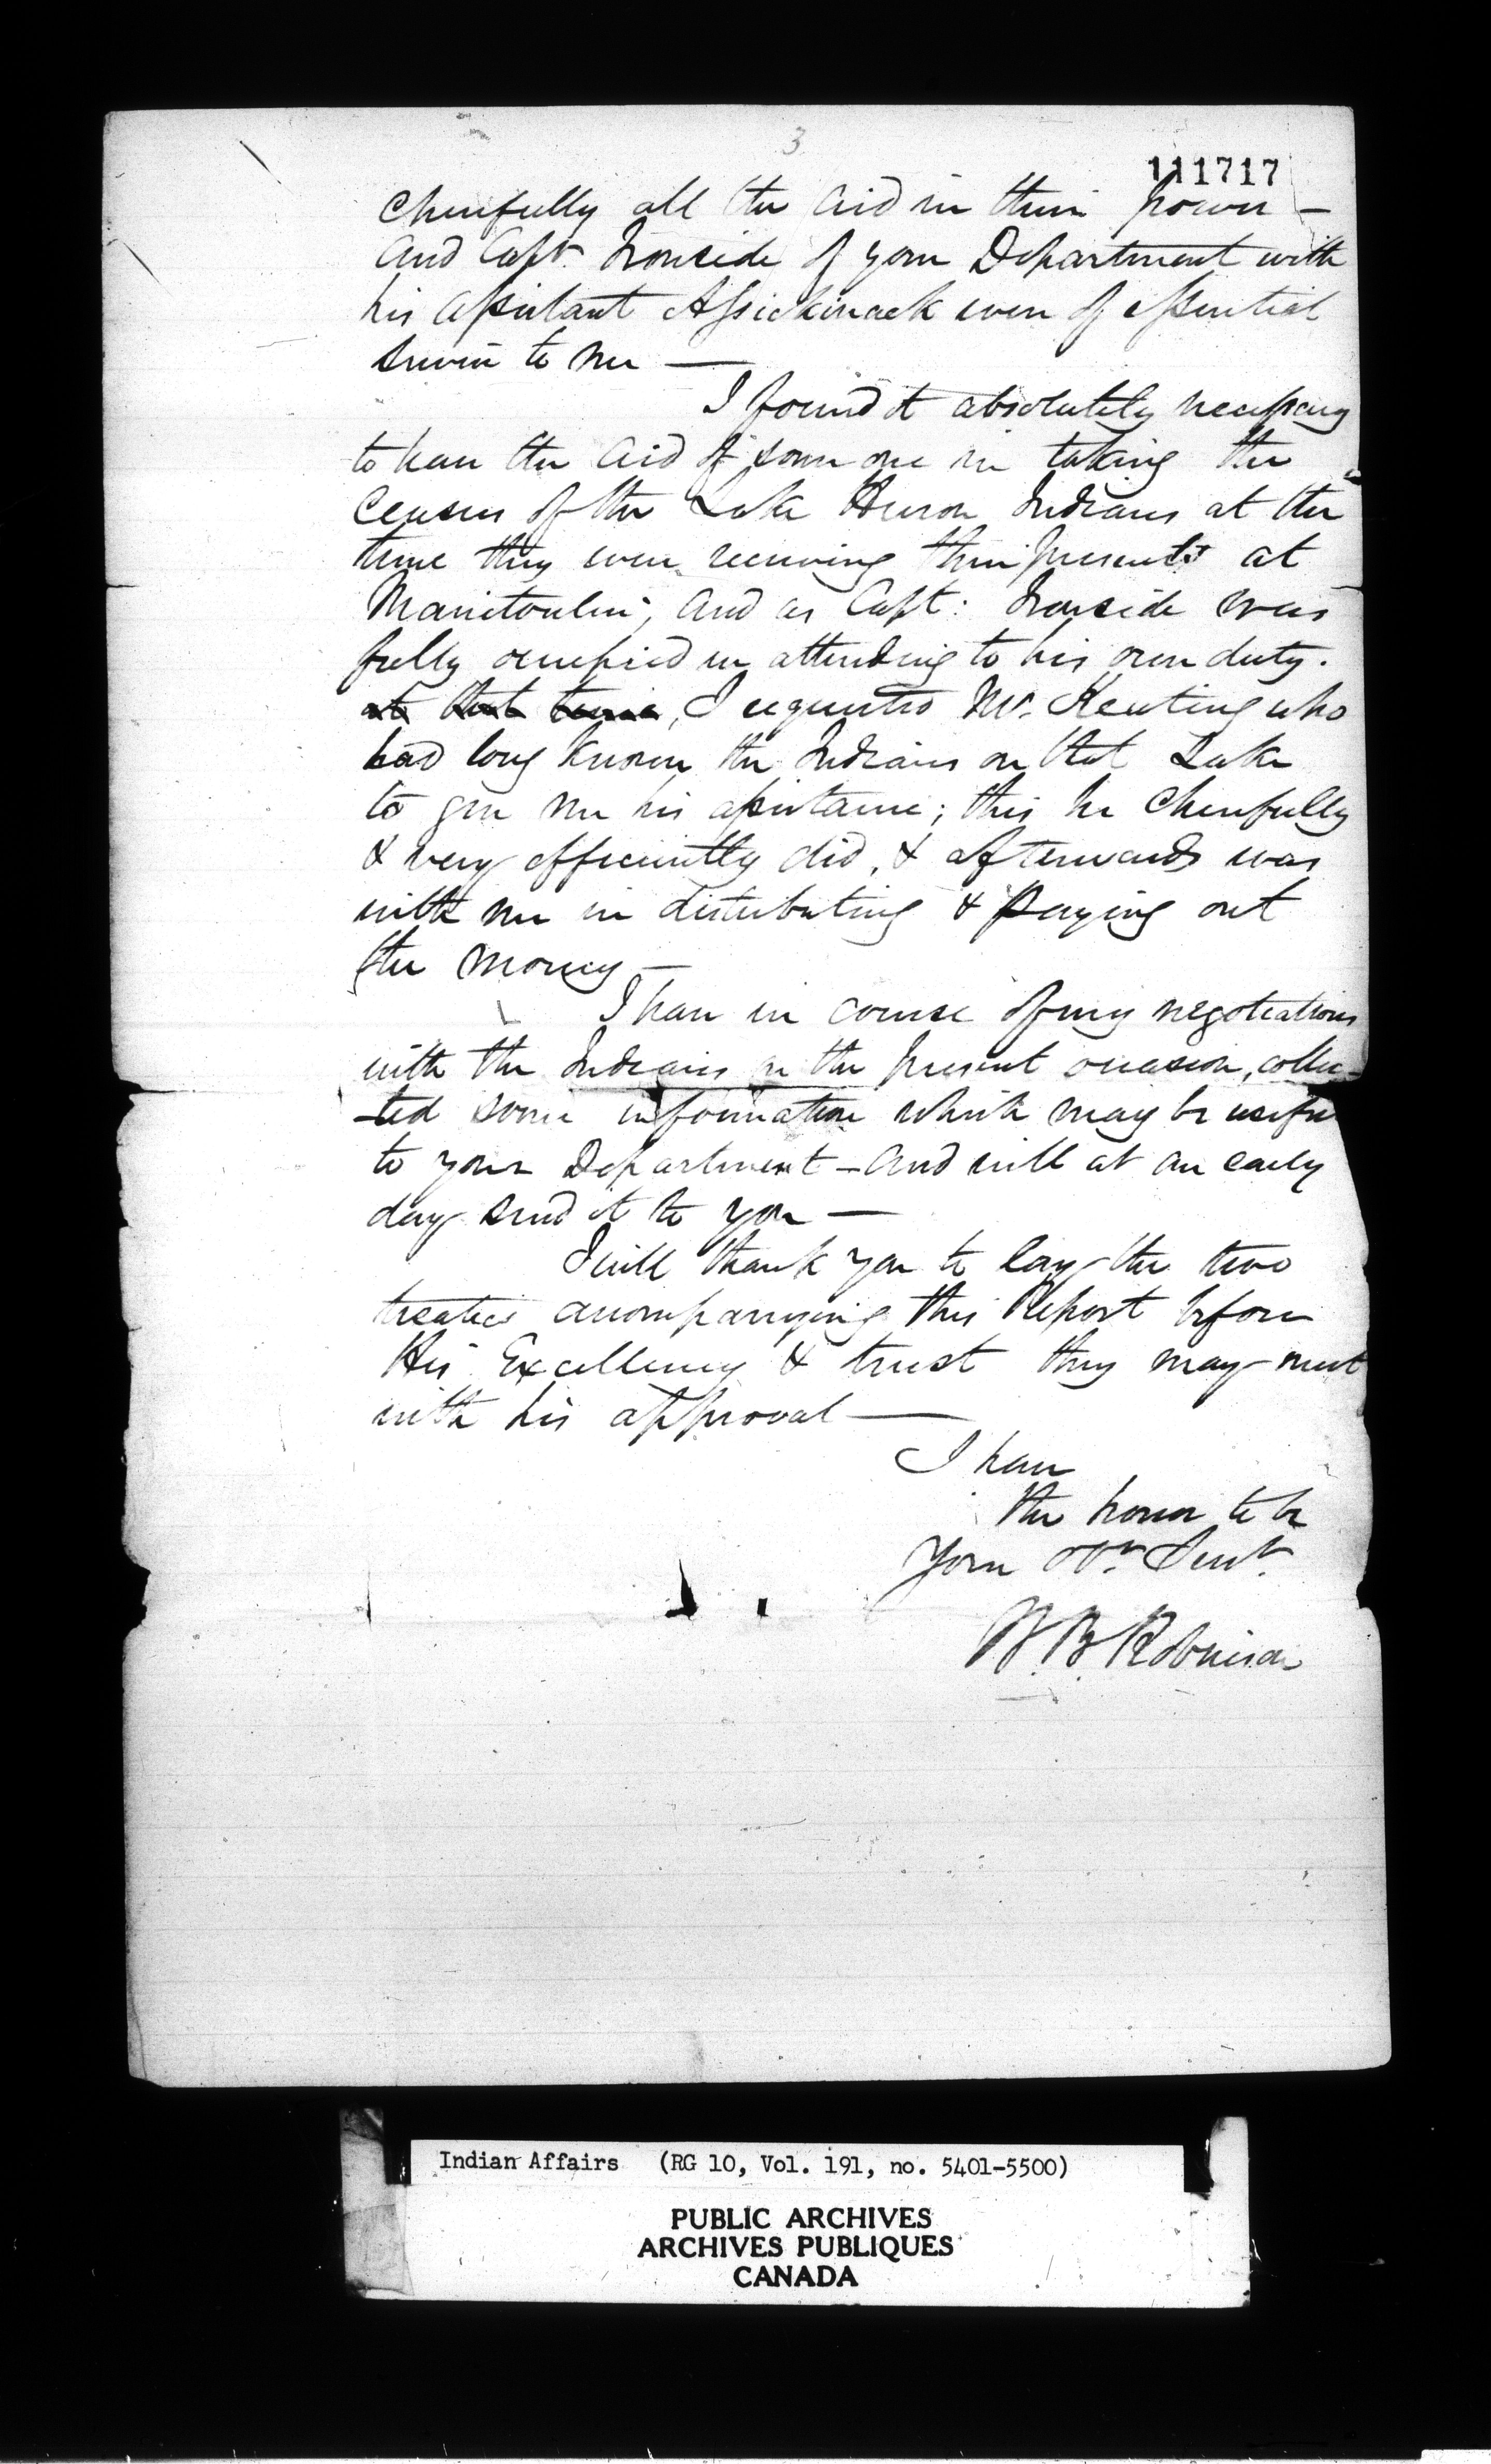 3
111717
cheerfully all the aid in their power —
and Capt. Ironside of your Department with
his assistant Assickinack were of essential
service to me —
I found it absolutely necessary
to have the aid of some one in taking the
Census of the Lake Huron Indians at the
time they were receiving their presents at
Manitoulin, and as Capt: Ironside was
fully occupied in attending to his own duty.
at that time, I requested Mr. Keating who
had long known the Indians on that Lake
to give me his assistance; this he cheerfully
& very efficiently did, & afterwards was
with me in distributing & paying out
the money —
I have in course of my negotiations
with the Indians on the present occasion, collec-
-ted some information which may be useful
to your Department — and will at an early
day send it to you —
I will thank you to lay the two
treaties accompanying this Report before
His Excellency & trust they may meet
with his approval —
I have
the honor to be
Your Obt. Servt.
W. B. Robinson
Indian Affairs (RG 10, Vol. 191, no. 5401-5500)
PUBLIC ARCHIVES
ARCHIVES PUBLIQUES
CANADA